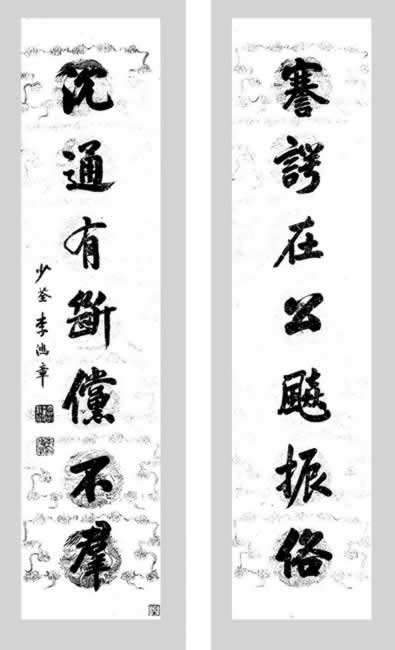 謇諤在公飈振俗
沉通有斷儻不羣
少荃李鴻章